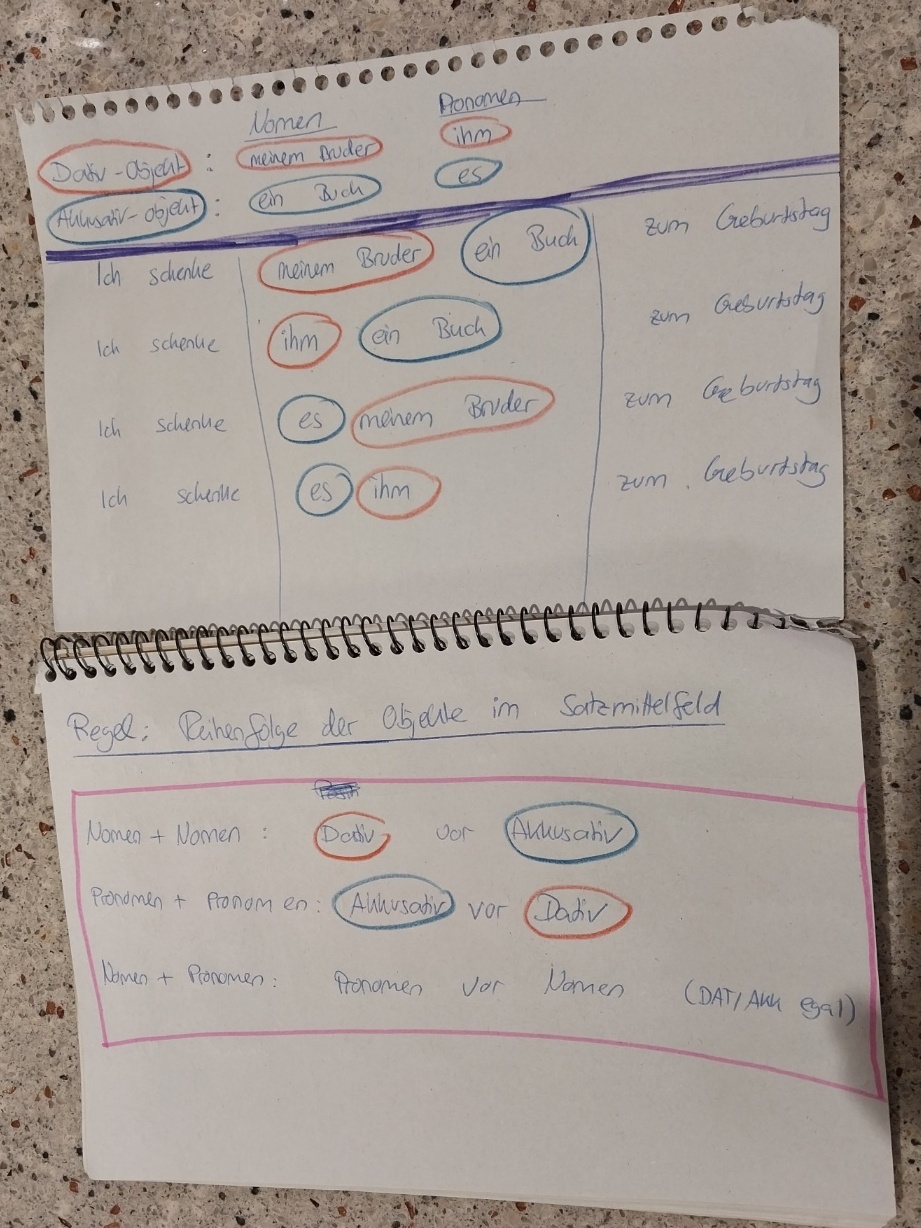 Nomen Pronomen
Dativ-Objekt : meinem Bruder ihm
Akkusativ-objekt : ein Buch es
Ich schenke meinem Bruder ein Buch zum Geburtstag
Ich schenke ihm ein Buch zum Geburtstag
Ich schenke es meinem Bruder zum Geburtstag
Ich schenke es ihm zum Geburtstag
Regel: Reihenfolge der Objekte im Satzmittelfeld
Nomen + Nomen : Dativ vor Akkusativ
Pronomen + Pronomen : Akkusativ vor Dativ
Nomen + Pronomen : Pronomen vor Nomen (DAT/Akk egal)